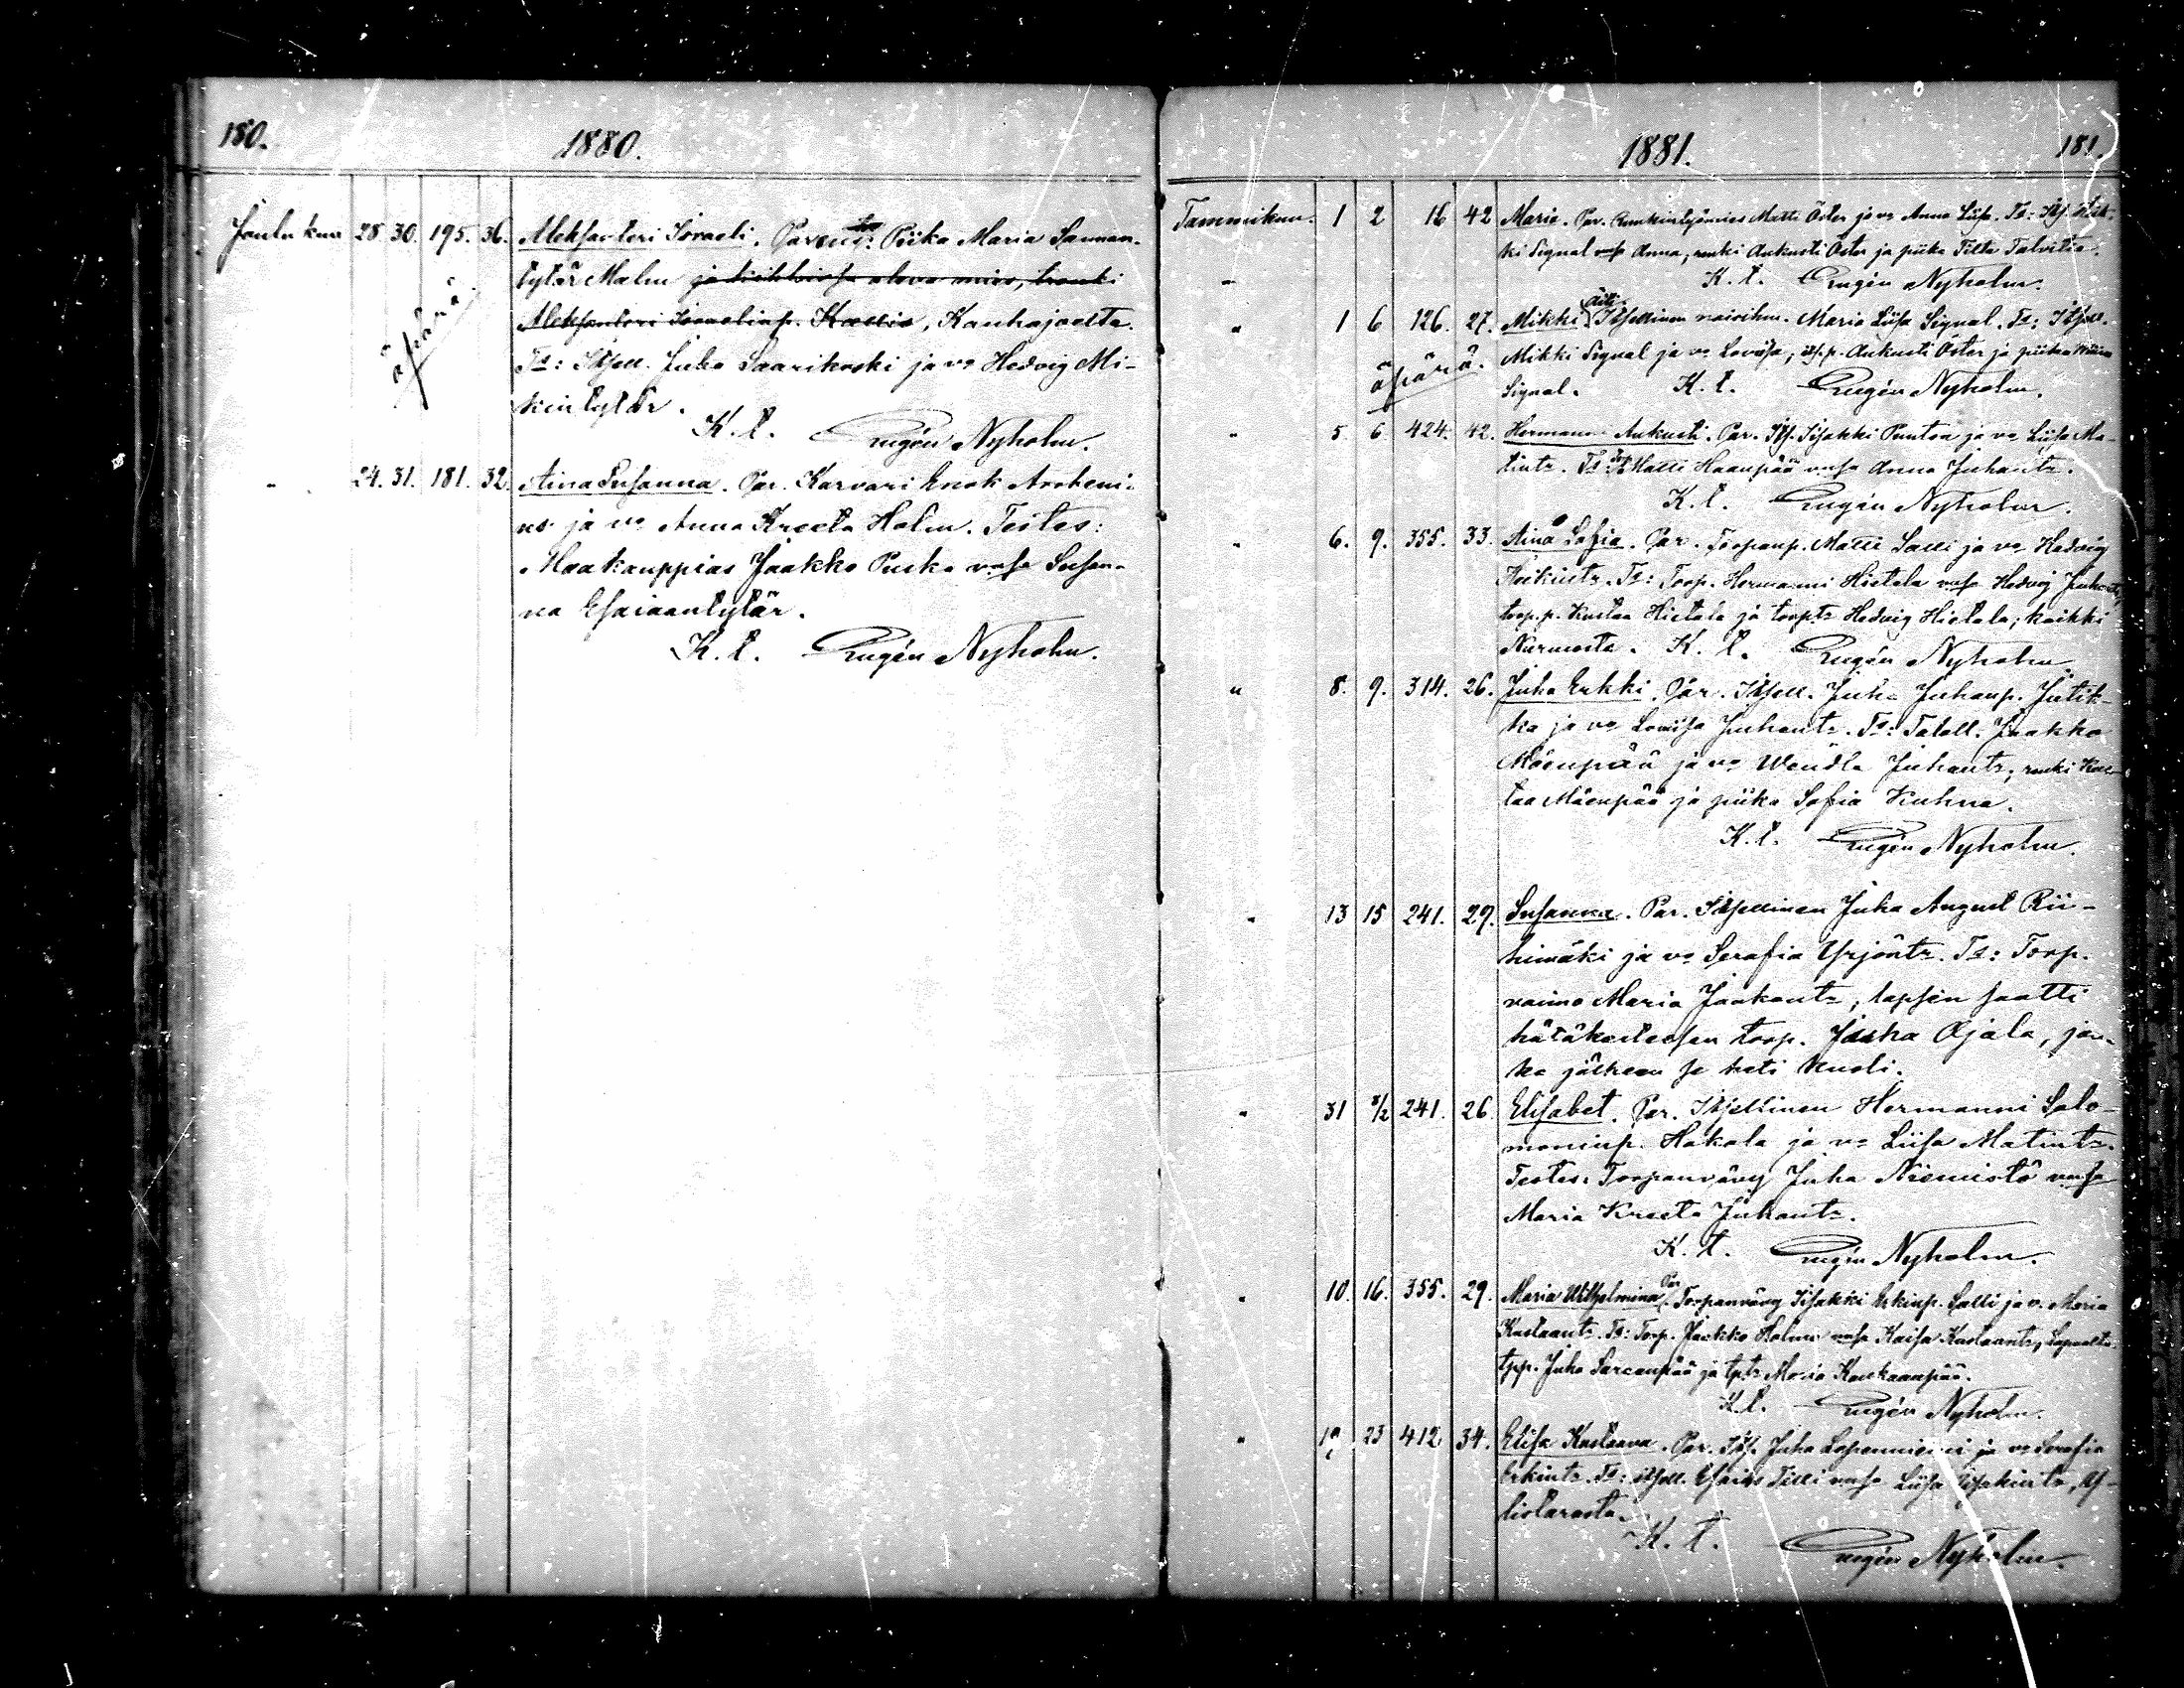 180.
1880.
Joulukuu 28 30. 195. 36. Aleksanteri Israeli. Parens: Piika Maria Sannan-
äpärä
tytär Malm ja kihloissa oleva mies, trenki
Aleksanteri Israelinp. Kallio, Kauhajoelta.
Ts: Itsell. Juho Saarikoski ja vo Hedvig Mi-
kintytär.
K. t. Eugén Nyholm.
" 24. 31. 181. 32. Aina Susanna. Par. Karvari Enok Archeni-
us ja vo Anna Kreeta Holm. Testes:
Maakauppias Jaakko Puska vmsa Susan-
na Esaiaantytär.
K. t. Eugén Nyholm.
1881.
181.
Tammikuu. 1 2 16 42 Maria. Par. Ruukintyömies Matti Öster ja vo Anna Liisa. Ts: Its. Hek-
ki Signal vmsa Anna, renki Aukusti Öster ja piika Tilta Talvitie.
" K. t. Eugén Nyholm.
" 1 6 126. 27. Mikki. Äiti Itsellinen naisihm. Maria Liisa Signal. Ts: Itsell.
äpärä. Mikki Signal ja vo Lovisa, its.p. Aukusti Öster ja piika
Signal. K. t. Eugén Nyholm.
" 5 6 424. 42. Hermanni Aukusti. Par. Its. Iisakki Puntoa ja vo Liisa Ma-
tintr. Ts: Matti Haanpää vmsa Anna Juhontr.
K. t. Eugén Nyholm.
" 6. 9. 355. 33. Aina Sofia. Par. Torpanp. Matti Salli ja vo Hedvig
Heikintr. Ts: Torp. Hermanni Hietala vmsa Hedvig Juhontr,
torp.p. Kustaa Hietala ja torptr Hedvig Hietala; kaikki
Nurmosta. K. t. Eugén Nyholm
" 8. 9. 314. 26. Juha Erkki. Par. Itsell. Juha Juhanp. Jutik-
ka ja vo Lovisa Juhontr. Ts: Taloll. Jaakko
Mäenpää ja vo Wendla Juhontr, renki Kus-
taa Mäenpää ja piika Sofia Kuhna.
K. t. Eugén Nyholm.
" 13 15 241. 29. Susanna. Par. Itsellinen Juha August Rii-
himäki ja vo Serafia Yrjöntr. Ts: Torp.
vaimo Maria Jaakontr, lapsen saatti
hätäkasteesen torp. Jaska Ojala, jon-
ka jälkeen se heti kuoli.
" 31 3/2 241. 26. Elisabet. Par. Itsellinen Hermanni Salo-
moninp. Hakala ja vo Liisa Matintr.
Testes: Torpanvävy Juha Niemistö vmsa
Maria Kreeta Juhontr.
K. t. Eugén Nyholm.
" 10. 16. 355. 29. Maria Wilhelmina. Par Torpanvävy Iisakki Erkinp. Salli ja v. Maria
Kustaantr. Ts: Torp. Jaakko Holma vmsa Kaisa Kustaantr, Lapualta
tpp. Juho Sarvanpää ja tptr Maria Kankaanpää.
K. t. Eugén Nyholm.
" 19 23 412 34. Elisa Kustaava. Par. Its. Juha Lapinniemi ja vo Serafia
Erkintr. Ts: itsell. Esaias Tilli vmsa Liisa Iisakintr, Yl-
listarosta.
K. t. Eugén Nyholm.